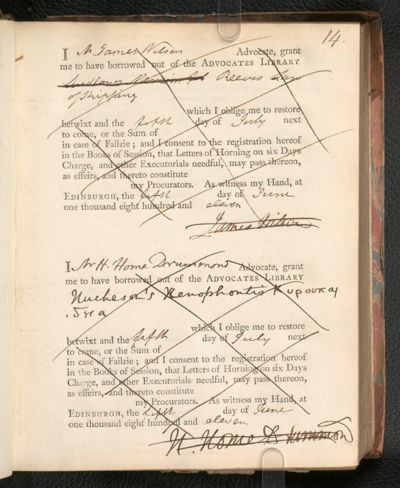 14.
I Mr James Wilson Advocate, grant
me to have borrowed out of the ADVOCATES LIBRARY
Reeves Law
of Shipping
which I oblige me to restore
betwixt and the fifth day of July next
to come, or the Sum of
in case of Failzie; and I consent to the registration hereof
in the Books of Session, that Letters of Horning on six Days
Charge, and other Executorials needful, may pass thereon,
as effeirs, and thereto constitute
my Procurators. As witness my Hand, at
EDINBURGH, the fifth day of June
one thousand eight hundred and eleven
James Wilson
I Mr H. Home Drummond Advocate, grant
me to have borrowed out of the ADVOCATES LIBRARY
Hucheson's Xenophontis Κυρουπαι
δεια
which I oblige me to restore
betwixt and the fifth day of July next
to come, or the Sum of
in case of Failzie; and I consent to the registration hereof
in the Books of Session, that Letters of Horning on six Days
Charge, and other Executorials needful, may pass thereon,
as effeirs, and thereto constitute
my Procurators. As witness my Hand, at
EDINBURGH, the fifth day of June
one thousand eight hundred and eleven
H. Home Drummond